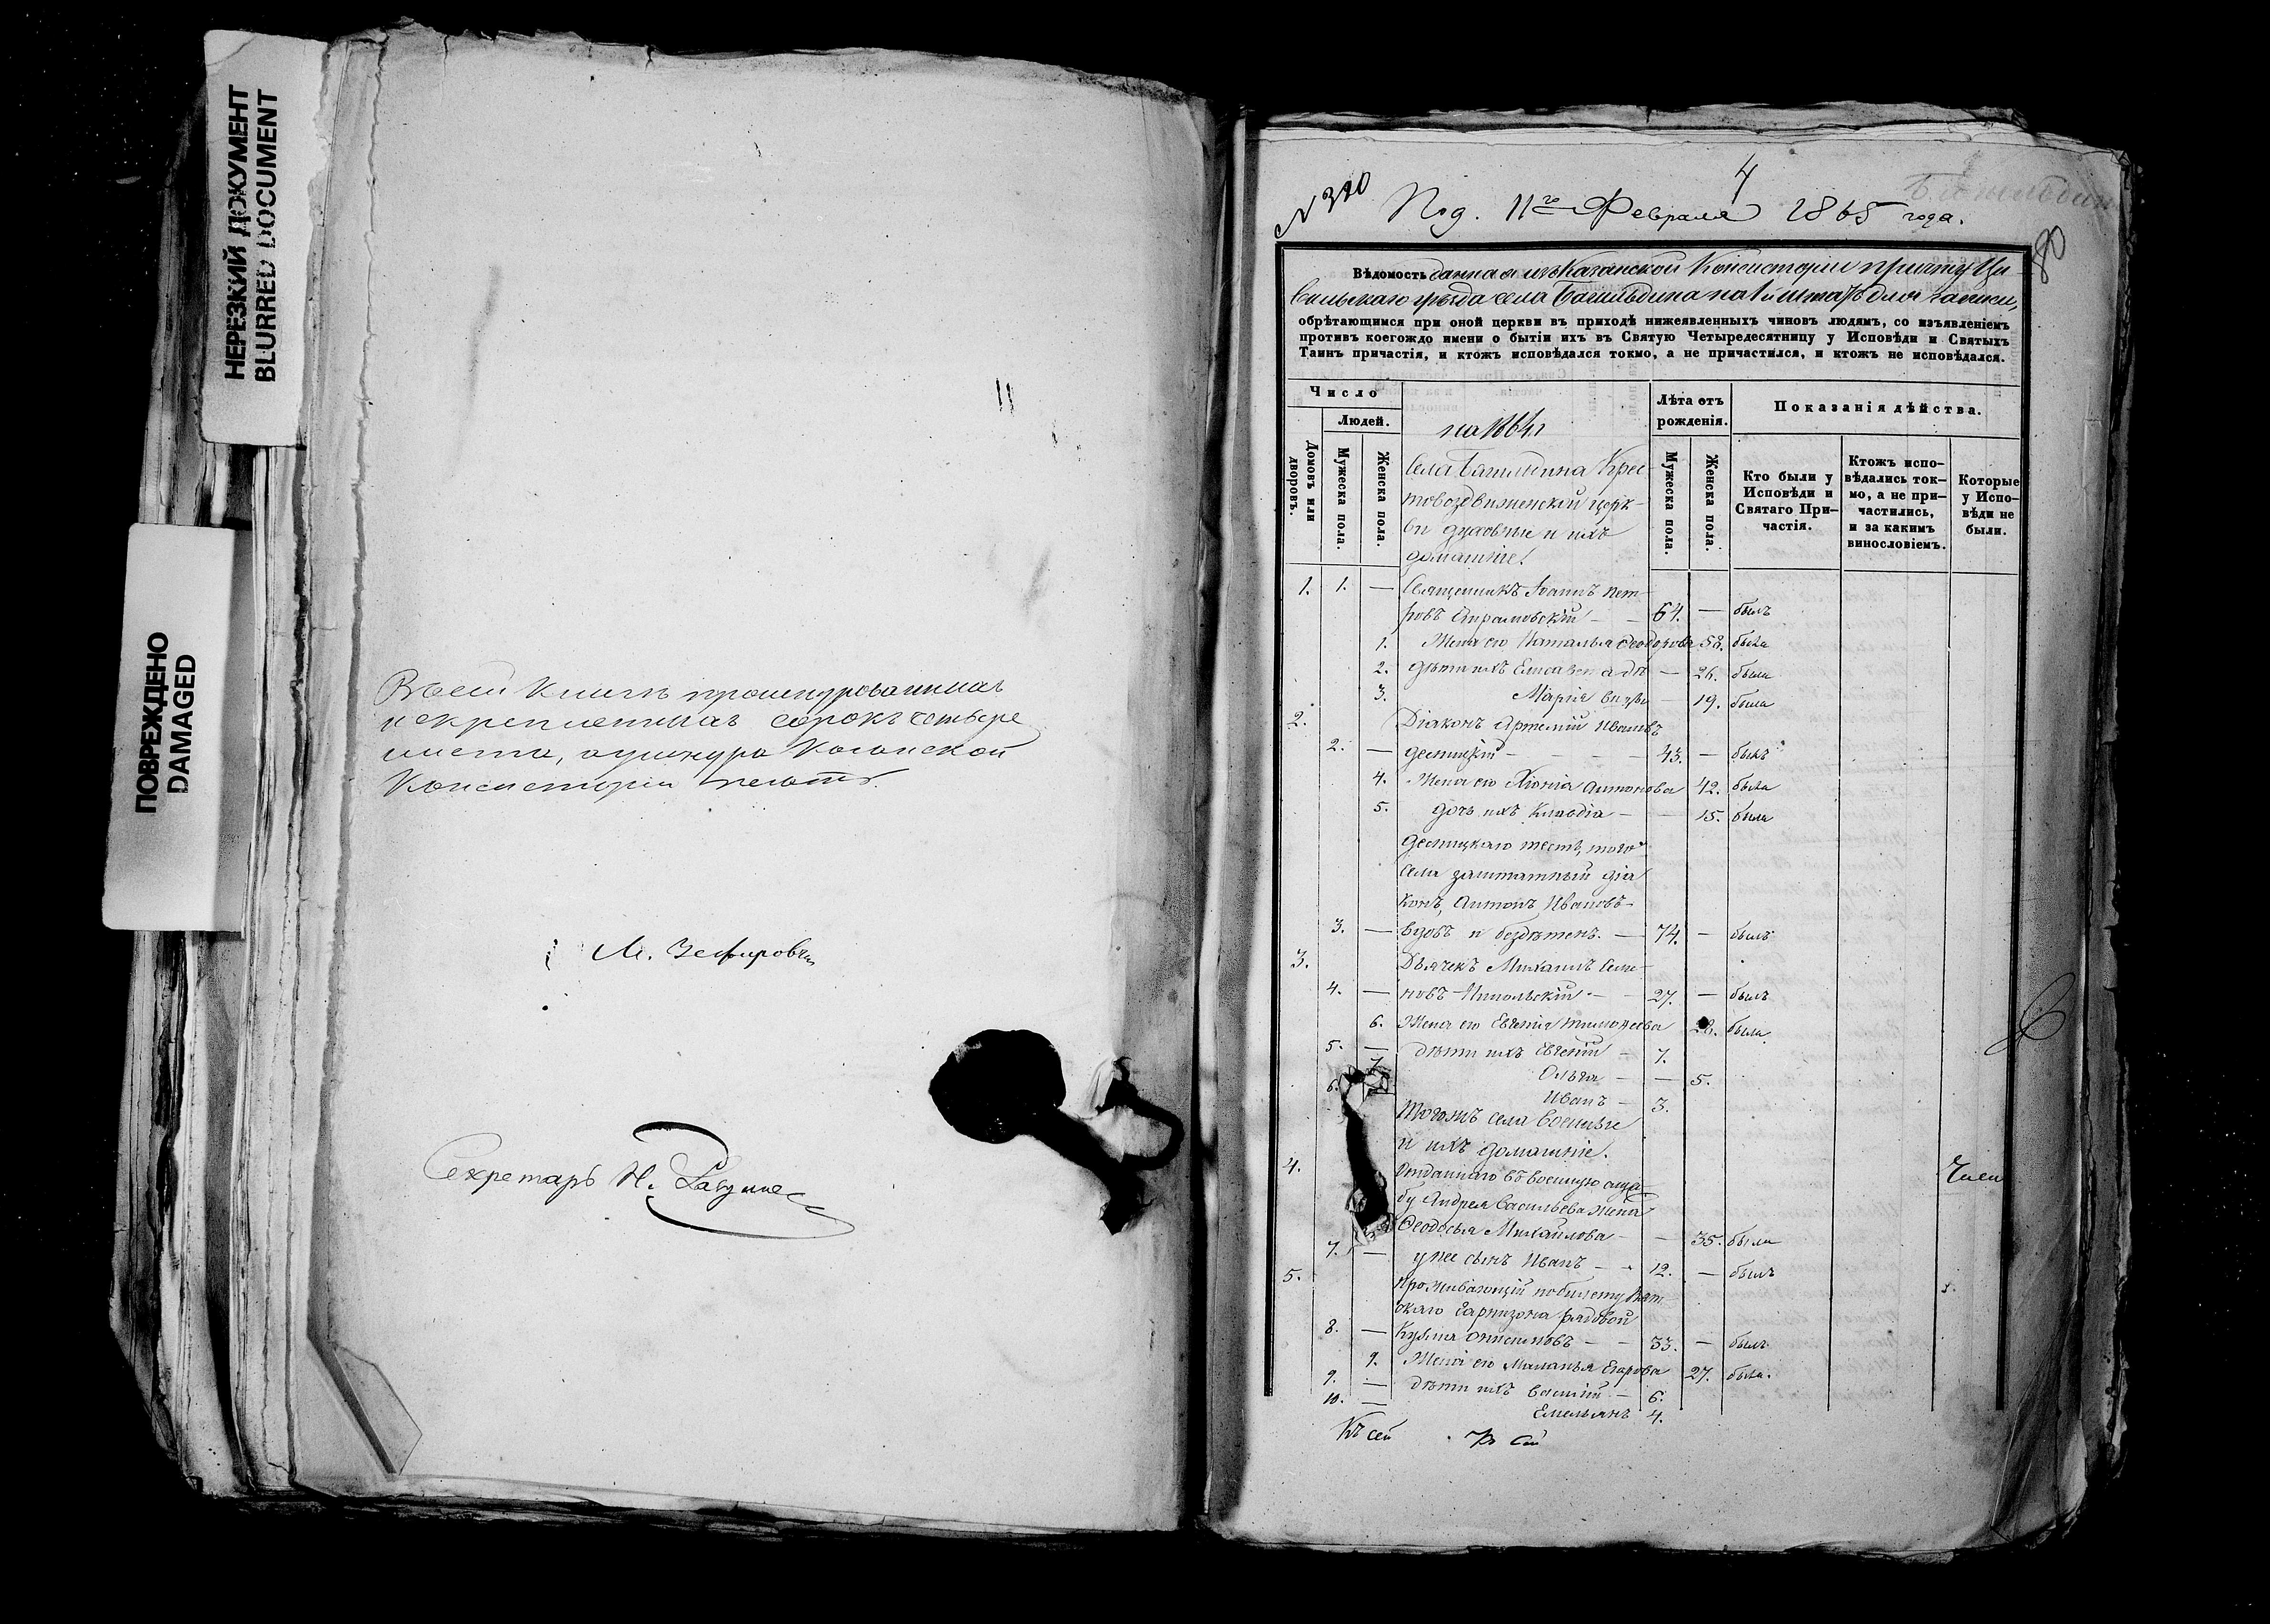 НЕРЕЗКИЙ ДОКУМЕНТ
BLURRED DOCUMENT
ПОВРЕЖДЕНО
DAMAGED
Въ сей книге прошнурованныхъ
и скрепленныхъ сорокъ четыре
листа, а у шнура Казанской
Консисторіи печать.
Секретарь Н.
4
N 320
Под. 11го Февраля 1865 года.
80
Вѣдомость данная изъ Казанской Консисторіи причту Ци-
вильскаго уѣзда села Багильдина на 1й штатъ для записи,
обрѣтающимся при оной церкви въ приходѣ нижеявленныхъ чиновъ людямъ, со изъявленіемъ
противъ коегождо имени о бытіи ихъ въ Святую Четыредесятницу у Исповѣди и Святыхъ
Таинъ причастія, и ктожъ исповѣдался токмо, а не причастился, и ктожъ не исповѣдался.
Число
Людей.
Домовъ или дворовъ.
Мужеска пола.
Женска пола.
на 1864 г.
Села Багильдина Крес-
товоздвиженской церк-
ви духовные и ихъ
домашніе.
Лѣта отъ рожденія.
Мужеска пола.
Женска пола.
Показанія дѣйства.
Кто были у Исповѣди и Святаго При-частія.
Ктожъ испо-вѣдались ток-мо, а не при-частились, и за какимъ винословіемъ.
Которые у Испо-вѣди не были.
1. 1. — Священникъ Іоаннъ Пет-
ровъ — 64. — былъ
1. Жена его Наталья Ѳеодорова 58. была
2. Дѣти ихъ Елисавета — 26. была
3. Марія — 19. была
2. Діаконъ Артемій Ивановъ
2. — Десницкій — 43. — былъ
4. Жена его Хіонія Антонова 42. была
5. дочь ихъ Клавдія — 15. была
Десницкаго тесть, того
села заштатный діа
конъ, Антонъ Ивановъ
3. — вдовъ и бездѣтенъ. — 74. — былъ
3. Дьячекъ Михаилъ Семе-
4. — новъ Никольскій — 27. — былъ
6. Жена его Евгенія Тимофеева 28. была
5. — дѣти ихъ Евгеній — 7.
7. Ольга — 5.
6. Иванъ — 3.
Тогожъ села военные
и ихъ домашніе.
4. Отданнаго въ военную служ-
бу Андрея Васильева жена
Ѳеодосья Михайлова — 35. была
7. — у нее сынъ Иванъ — 12. — былъ
5. Проживающій по билету Вят
скаго Гарнизона рядовой
8. — Кузьма — 33. — былъ
9. Жена его Маланья Егорова 27. была.
9. — Дѣти ихъ Василій — 6.
10. — Емельянъ 4.
Къ сей
Къ сей